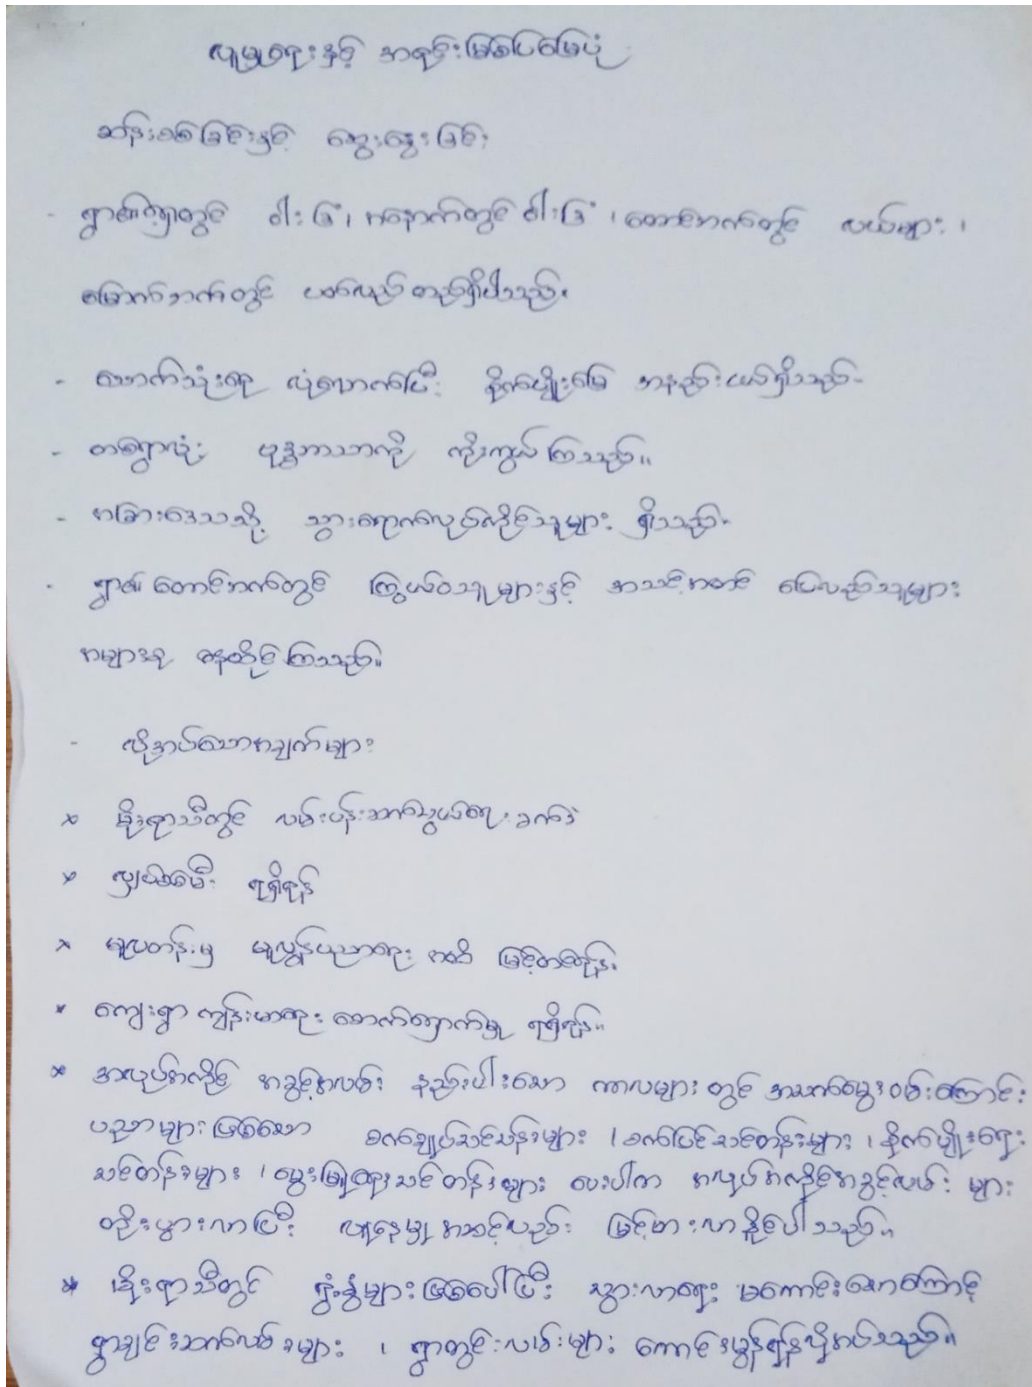 လူမှုရေးနှင့် အရင်းမြစ်ပြမြေပုံ
ဆန်းစစ်ခြင်းနှင့် ဆွေးနွေးခြင်း
- ရွာ၏အရှေ့တွင် ဝါးခြံ၊ အနောက်တွင် ဝါးခြံ ၊ တောင်ဘက်တွင် လယ်များ ၊
မြောက်ဘက်တွင် တည်ရှိပါသည်။
- သောက်သုံးရေ လုံလောက်ပြီး စိုက်ပျိုးမြေ အနည်းငယ်ရှိသည်။
- တစ်ရွာလုံး ဗုဒ္ဓဘာသာကို ကိုးကွယ်ကြသည်။
- အခြားဒေသသို့ သွားရောက်လုပ်ကိုင်သူများ ရှိသည်။
- ရွာ၏ တောင်ဘက်တွင် ကြွယ်ဝသူများနှင့် အသင့်အတင့် ပြေလည်သူများ
အများစု နေထိုင်ကြသည်။
- လိုအပ်သောအချက်များ
× မိုးရာသီတွင် လမ်းပန်းဆက်သွယ်ရေး ခက်ခဲ
× လျှပ်စစ်မီး ရရှိရန်
× မူလတန်းမှ မူလွန်ပညာရေး အထိ မြှင့်တင်ရန်။
× ကျေးရွာ ကျန်းမာရေး စောက်ရှောက်မှု ရရှိရန်။
× အလုပ်အကိုင် အခွင့်အလမ်း နည်းပါးသော ကာလများ တွင် အသက်မွေးဝမ်းကြောင်း
ပညာများဖြစ်သော စက်ချုပ်သင်တန်းများ ၊ စက်ပြင်သင်တန်းများ ၊ စိုက်ပျိုးရေး
သင်တန်းများ ၊ မွေးမြူရေးသင်တန်းများ ပေးပါက အလုပ်အကိုင်အခွင့်လမ်း များ
တိုးပွားလာပြီး လူနေမှုအဆင့်လည်း မြင့်မားလာနိုင်ပါသည်။
× မိုးရာသီတွင် ရွှံ့နွံများဖြစ်ပေါ်ပြီး သွားလာရေး မကောင်းသောကြောင့်
ရွာချင်းဆက်လမ်းများ ၊ ရွာတွင်းလမ်းများ ကောင်းမွန်ရန်လိုအပ်သည်။